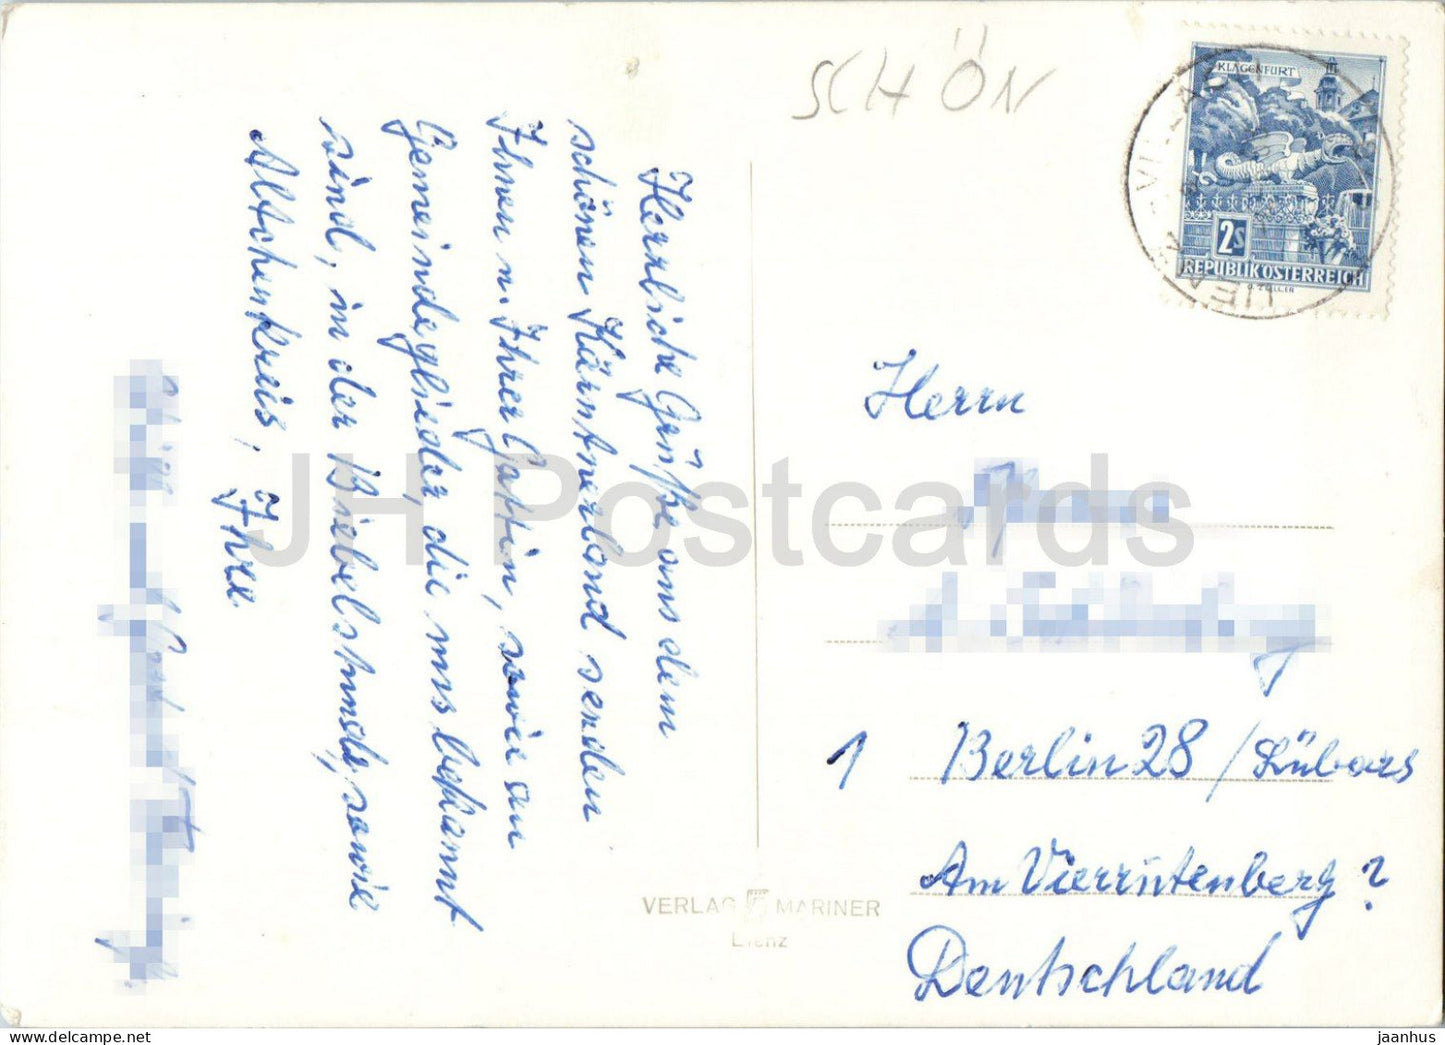 SCHÖN
KLAGENFURT
2S
REPUBLIK ÖSTERREICH
VILLACH
LIENZ
Herrliche Grüße aus dem
schönen Kärntnerland senden
Ihnen u. Ihrer Gattin, sowie an
Gemeindeglieder, die uns bekannt
sind, in der Biebelstunde, sowie
Altchenkreis, Ihre
Herrn
1 Berlin 28 / Lübars
Am Vierrutenberg ?
Deutschland
VERLAG MARINER
Lienz
JH Postcards
jaanhus @ delcampe.net